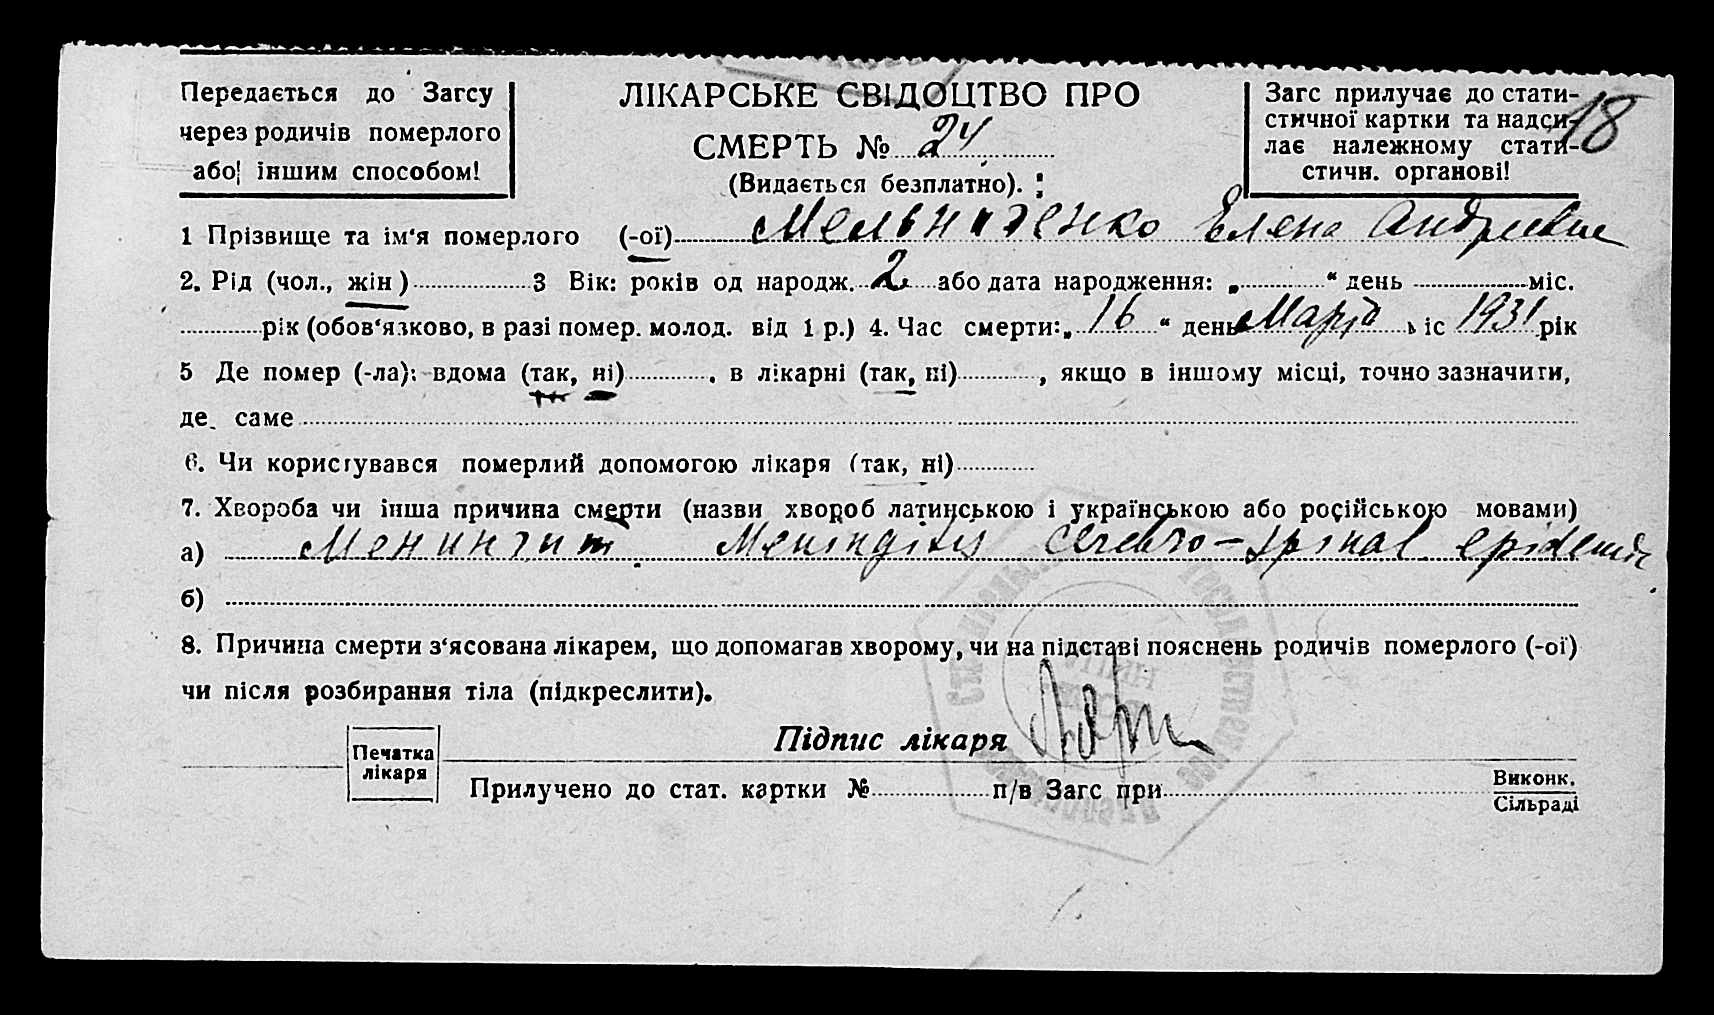 Передається до Загсу
через родичів померлого
або іншим способом!
ЛІКАРСЬКЕ СВІДОЦТВО ПРО
СМЕРТЬ № 24
(Видається безплатно).
Загс прилучає до стати-
стичної картки та надси-
лає належному стати-
стичн. органові!
18
1 Прізвище та ім‘я померлого (-ої) Мельниченко Елена
2. Рід (чол., жін) 3 Вік: років од народж. 2 або дата народження: „ “ день міс.
рік (обов‘язково, в разі помер. молод. від 1 р.) 4. Час смерти: „ 16 “ день Марта іс 1931 рік
5 Де помер (-ла): вдома (так, ні) , в лікарні (так, ні) , якщо в іншому місці, точно зазначити,
де саме
6. Чи користувався померлий допомогою лікаря (так, ні)
7. Хвороба чи інша причина смерти (назви хвороб латинською і українською або російською мовами)
а) Менингит Meningitis Cerebro-spinal
б)
8. Причина смерти з‘ясована лікарем, що допомагав хворому, чи на підставі пояснень родичів померлого (-ої)
чи після розбирання тіла (підкреслити).
Печатка
лікаря
Підпис лікаря
Прилучено до стат. картки № п/в Загс при
Виконк.
Сільраді